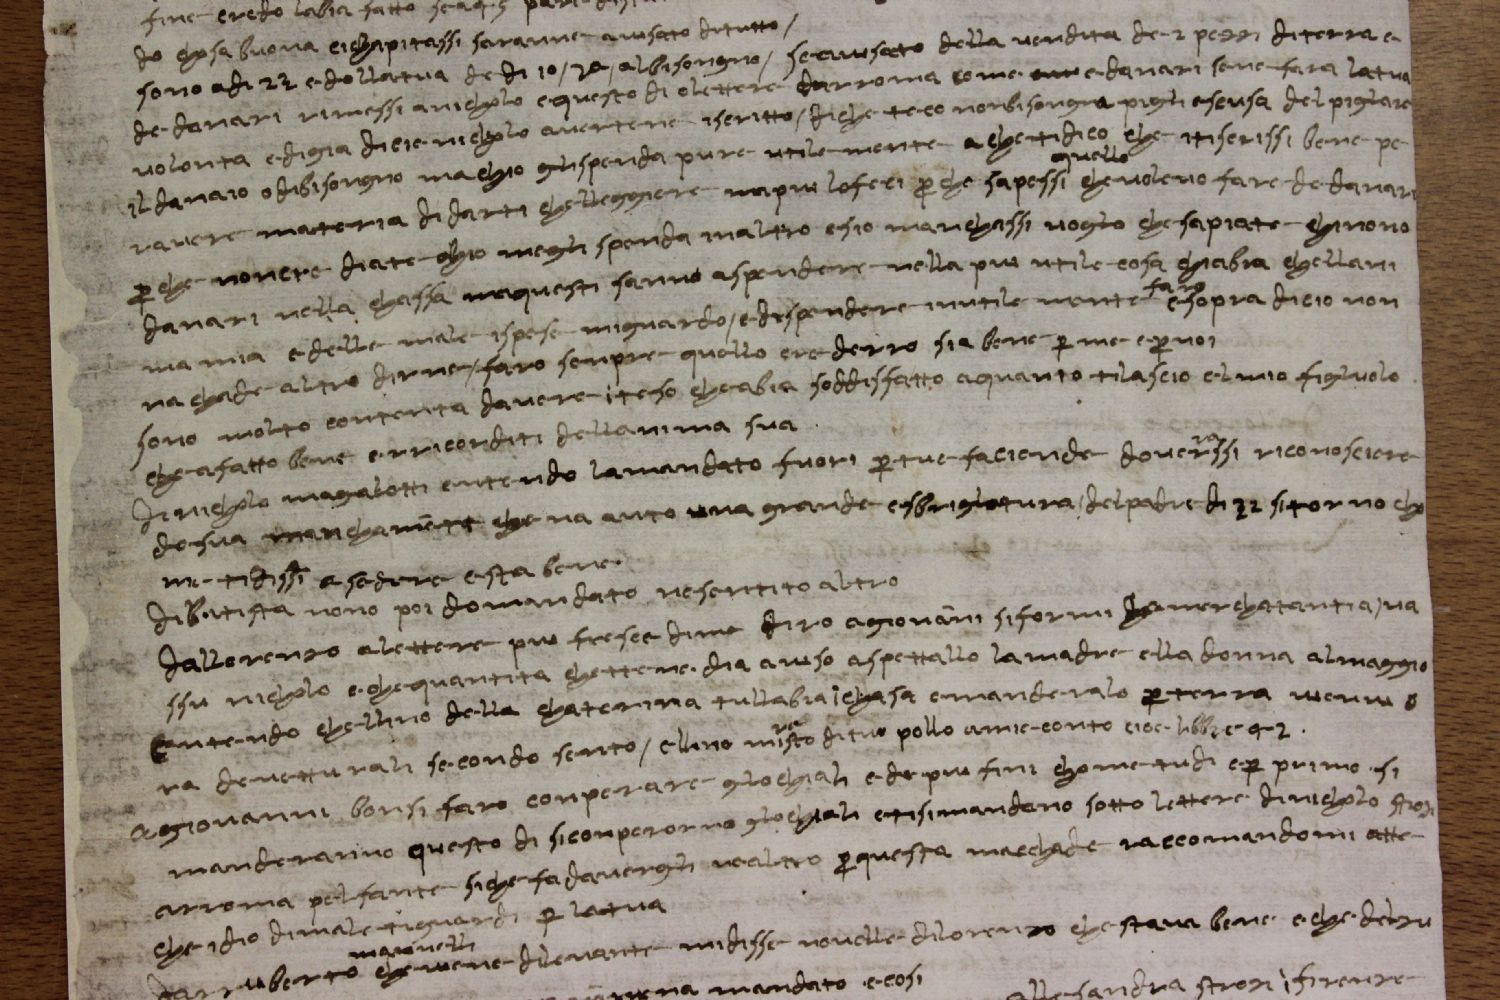 fine credo labia fatto
do chosa buona cichapitassi saranne avisato ditutto /
sono adi 22 e dollatua de di 10 / 20 / albisongno / se avisato della vendita de 2 pezzi diterra e
de danari rimessi anicholo e questo di o lettere darroma come e danari sene fara latua
volonta e digia dicie nicholo avertene iscritto / di che teco nonbisongna pigli schusa del pigliare
il danaio o dibisongno ma chio glispenda pure utile mente a che tidico che itiscrissi bene pe
ravere materia di darti chelleggiere mapiu lofeci perche sapessi quello chevolevo fare de danari
perche noncrediate chio megli spenda inaltro e sio manchassi voglio chesapiate chinono
danari nella chassa maquesti fanno aspendere nella piu utile cosa chiabia chellani
ma mia e delle male ispese miguardo / e dispendere inutile mente faro e sopra dicio non
machade altro dirne / faro senpre quello crederro sia bene per me e per voi
sono molto contenta davere inteso cheabia soddisfatto aquanto tilascio el mio figluolo
che afatto bene e rricorditi dellanima sua
di nicholo magalotti entendo lamandato fuori per tue faciende doverrassi riconosciere
de sua manchamenti che na auto una grande esbrigliatura / delpadre di 22 sitorno cho
me tidissi asedere e sta bene
dibatista nono poi domandato ne sentito altro
dallorenzo a lettere piu fresce dime diro agiovanni siformi la merchatantia / va
ssu nicholo e che quantita chettene dia aviso aspettallo lamadre ella donna almaggio
Entendo chellino della chaterina tullabia ichasa e manderalo per terra
ra de vetturali secondo sento / ellino mira dituo pollo amie conto cioe libbre 42 .
agiovanni bonsi faro conperare gliochiali e de piu fini chome tudi e per primo si
manderanno questo di siconperorno gliochiali e tisimandano sotto lettere dinicholo strozi
arroma pelfante siche fa davergli ne altro per questa machade raccomandomi atte
che idio dimale tiguardi per latua
darruberto mannelli che viene dilevante midisse novelle dilorenzo che stava bene e che
mandato e cosi
allesandra strozi ifirenze